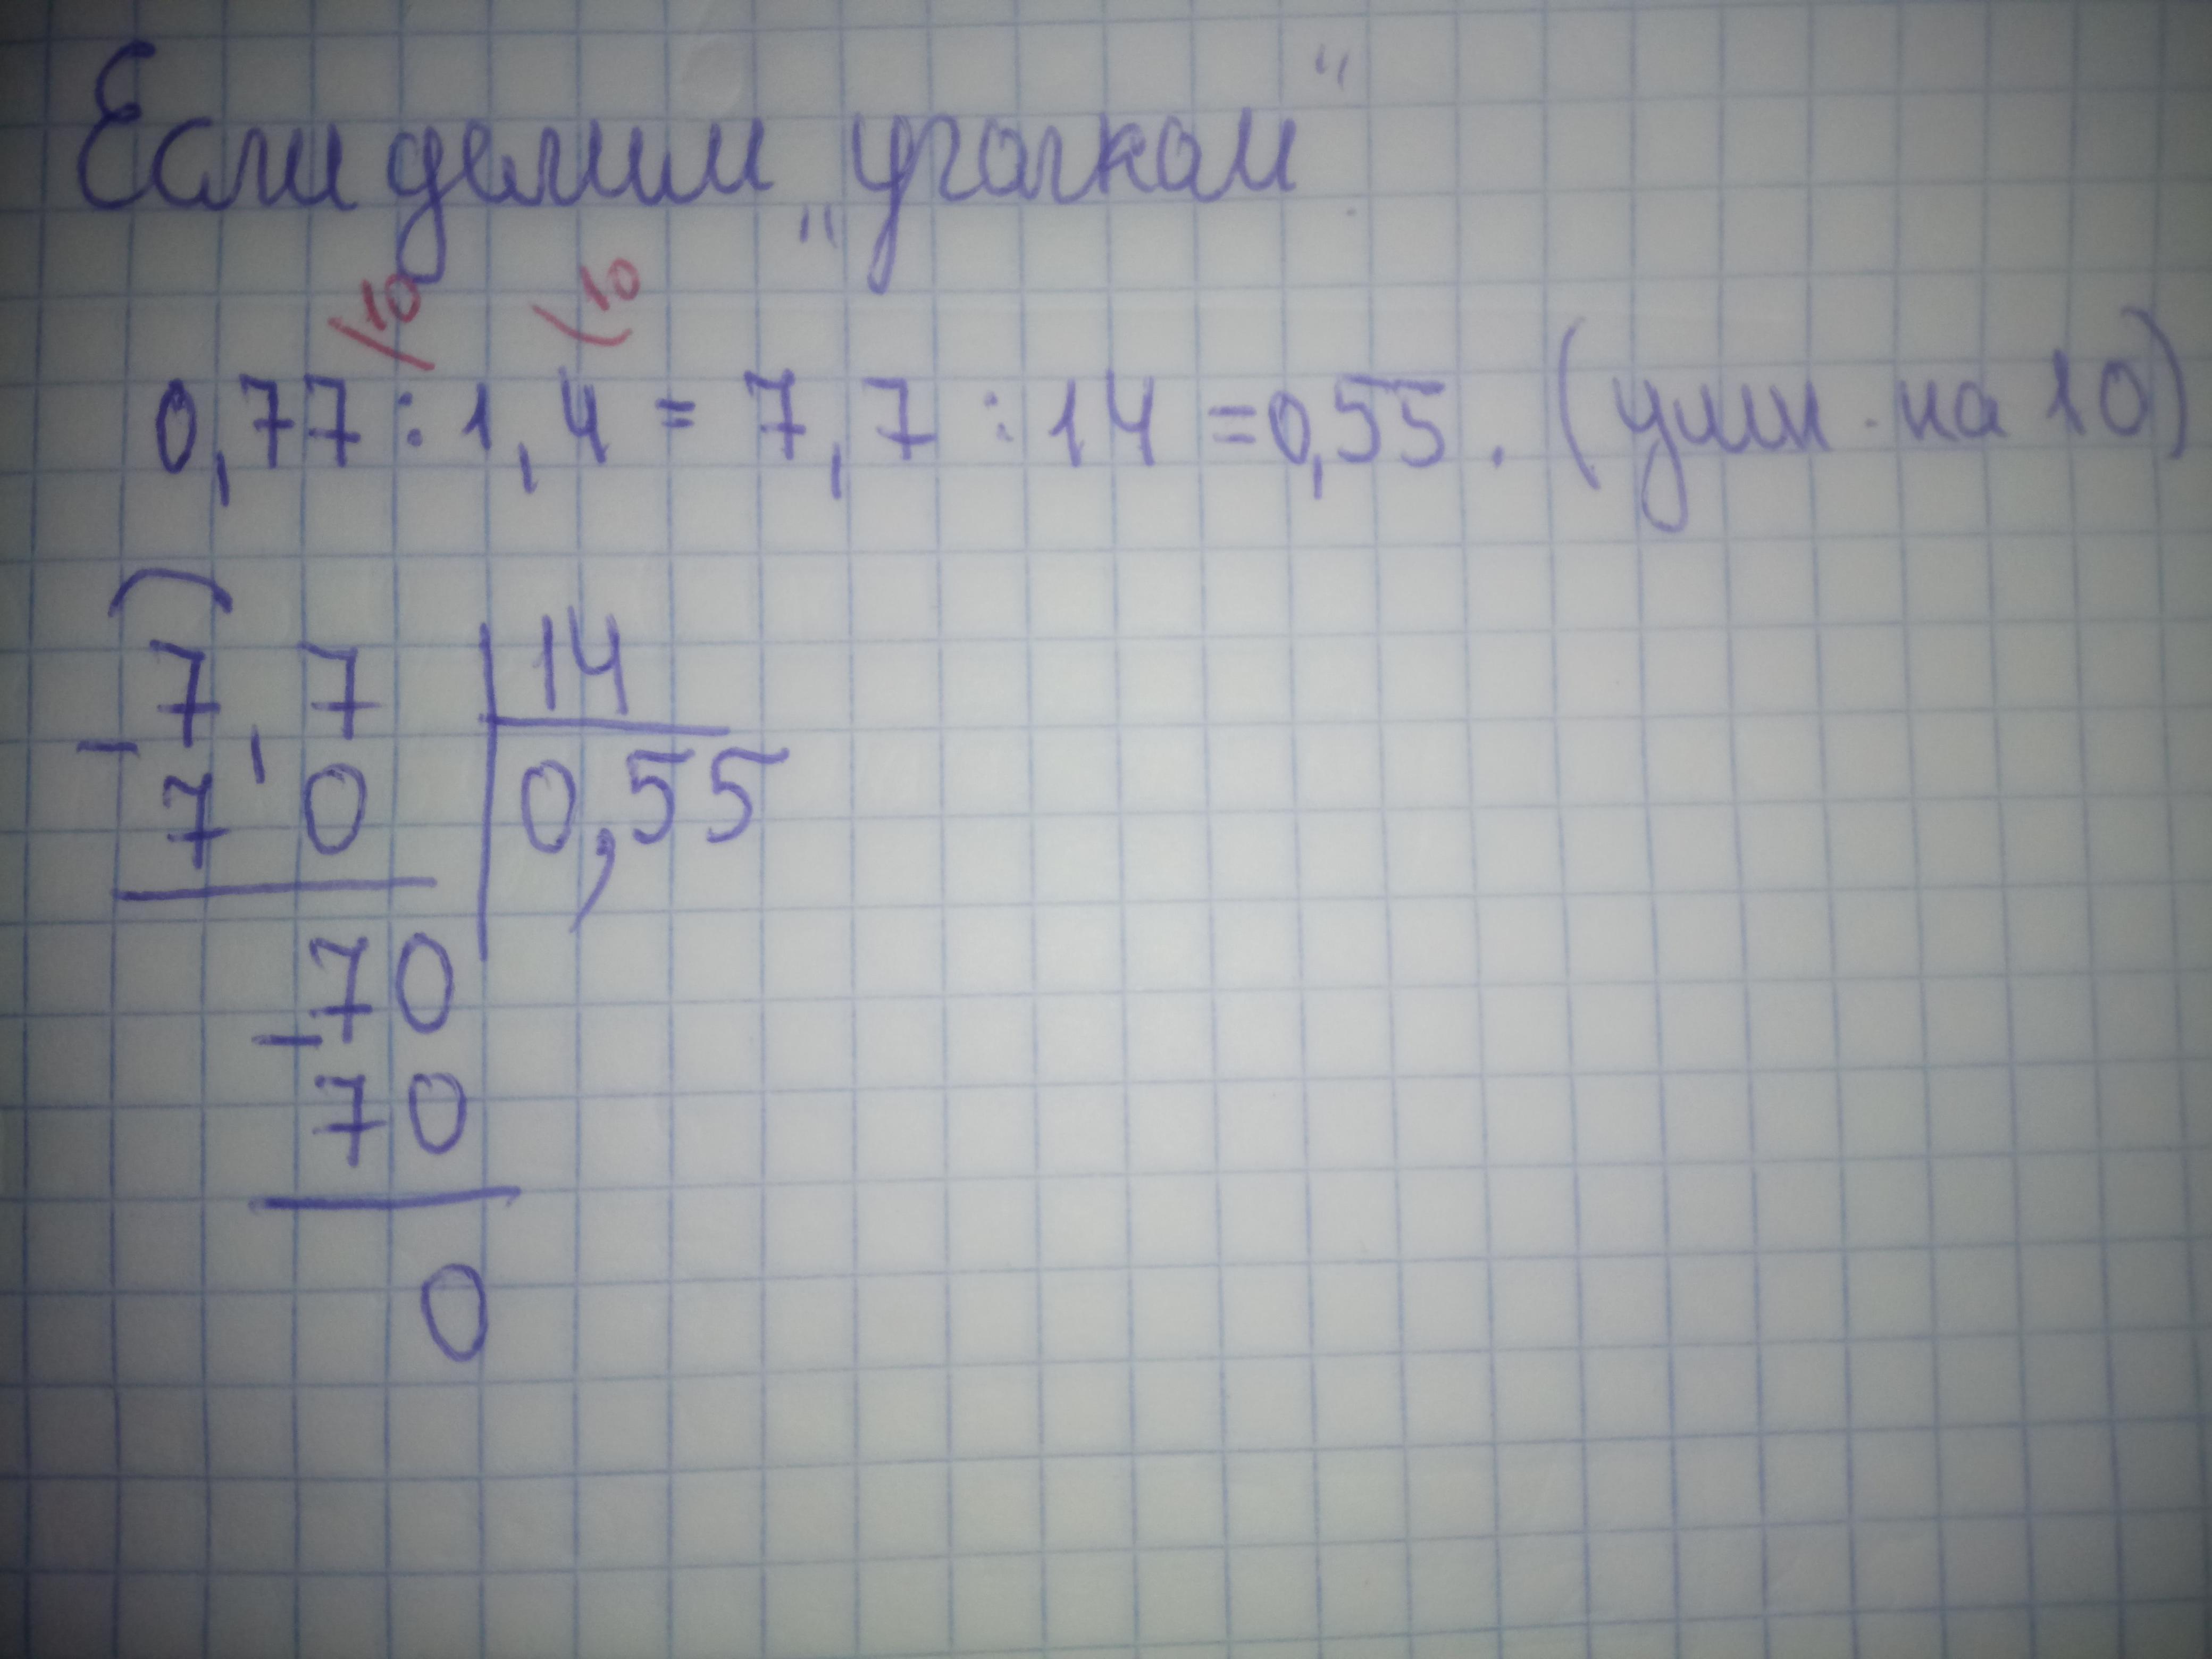 Если делим „уголком“
\10 \10
0,77 : 1,4 = 7,7 : 14 = 0,55. (умн. на 10)
7,7 | 14
− 7 0 | 0,55
70
− 70
0